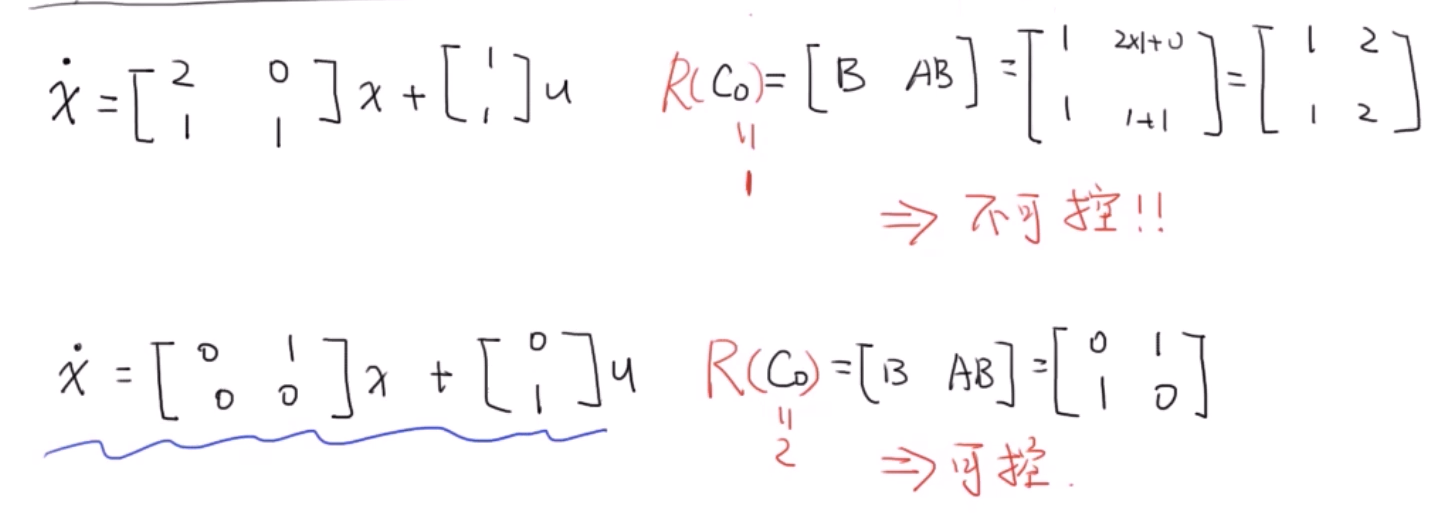 ẋ = [2 0; 1 1] x + [1; 1] u    R(C₀) = [B AB] = [1 2×1+0; 1 1+1] = [1 2; 1 2]
=
1
⇒ 不可控!!
ẋ = [0 1; 0 0] x + [0; 1] u    R(C₀) = [B AB] = [0 1; 1 0]
=
2
⇒ 可控.